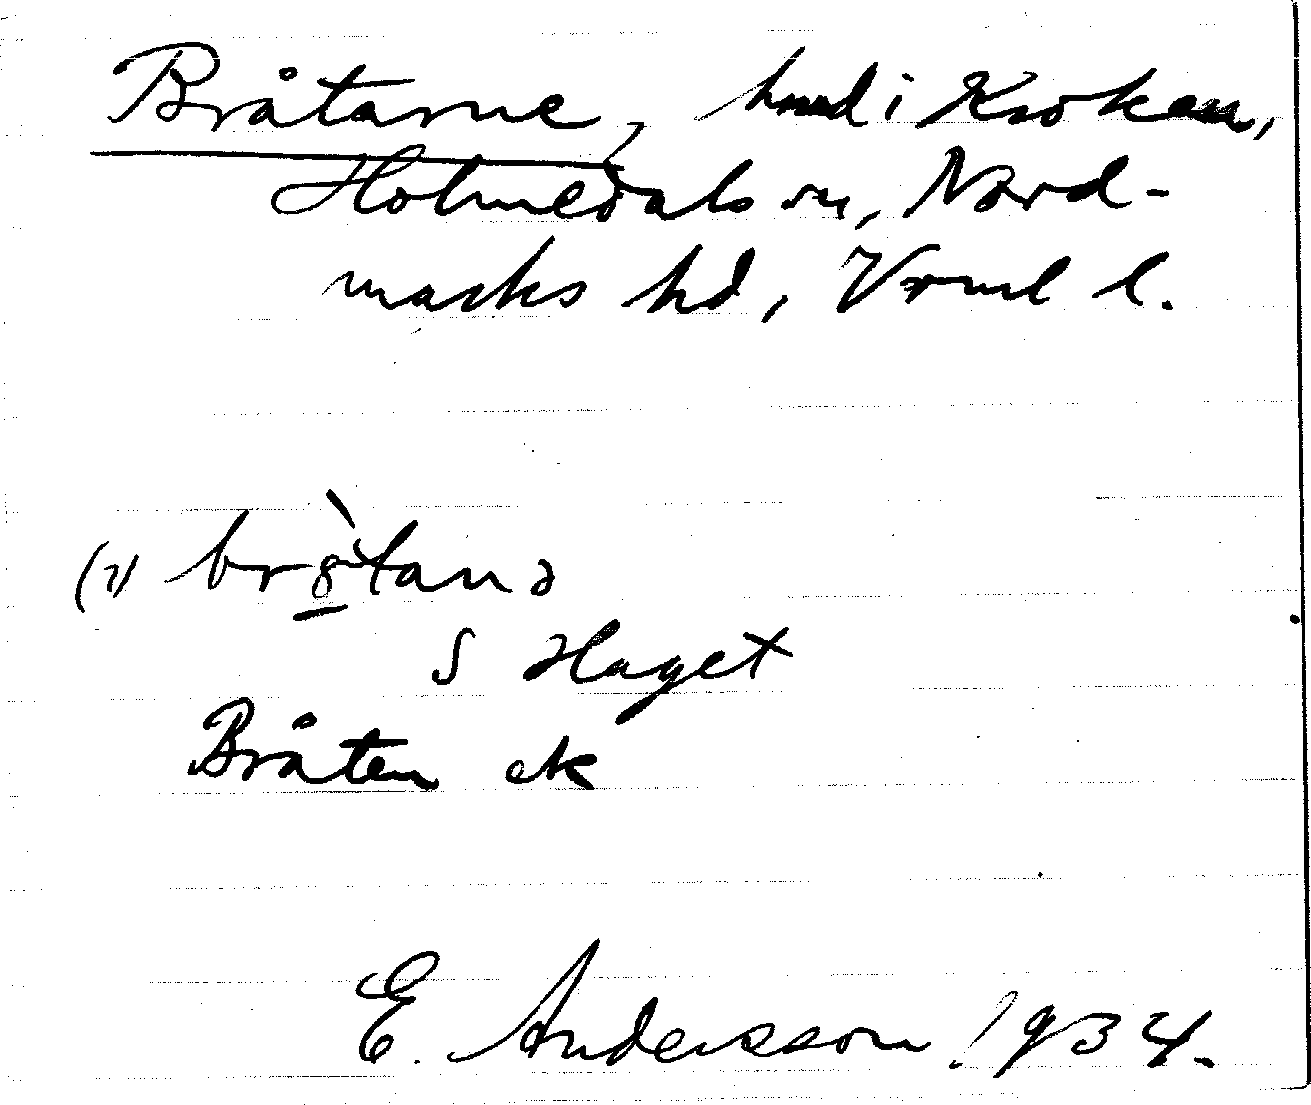 Bråtarne, hmd i Kroken,
Holmedals sn, Nord-
marks hd, Vrml l.
(2) br8̠̀tanə
S Haget
Bråten ek
E. Andersson 1934.